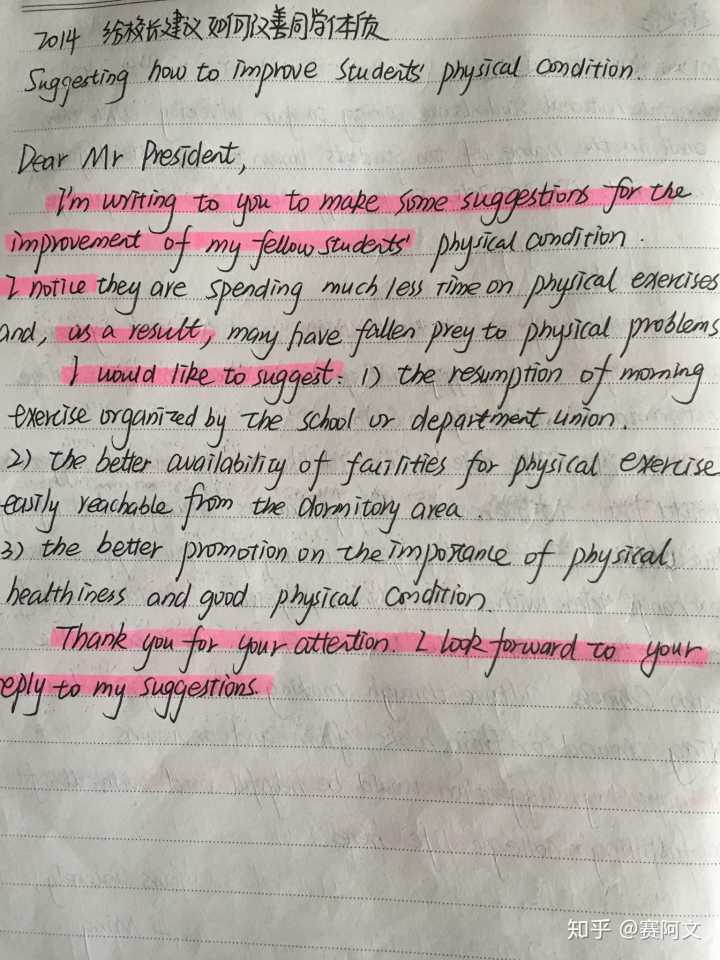 2014 给校长建议 如何改善同学体质
Suggesting how to improve students' physical condition.
Dear Mr President,
I'm writing to you to make some suggestions for the
improvement of my fellow students' physical condition.
I notice they are spending much less time on physical exercises
and, as a result, many have fallen prey to physical problems
I would like to suggest: 1) the resumption of morning
exercise organized by the school or department union.
2) the better availability of facilities for physical exercise
easily reachable from the dormitory area.
3) the better promotion on the importance of physical
healthiness and good physical condition.
Thank you for your attention. I look forward to your
eply to my suggestions.
知乎 @赛阿文